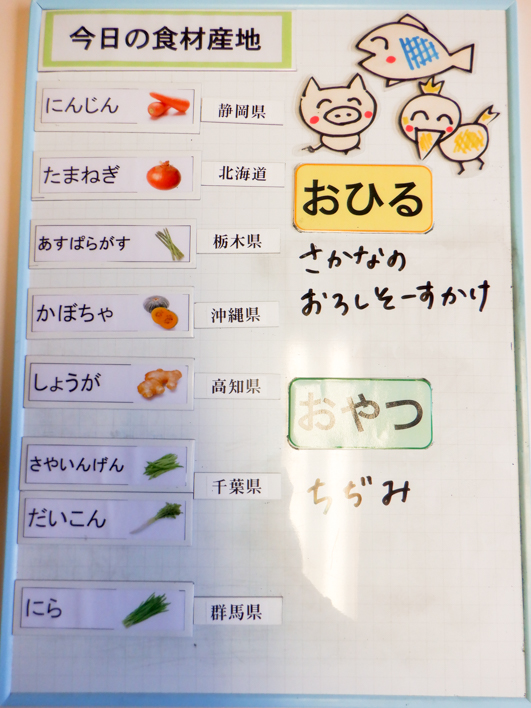 今日の食材産地
にんじん 静岡県
たまねぎ 北海道
あすぱらがす 栃木県
かぼちゃ 沖縄県
しょうが 高知県
さやいんげん
千葉県
だいこん
にら 群馬県
おひる
さかなの
おろしそーすかけ
おやつ
ちぢみ